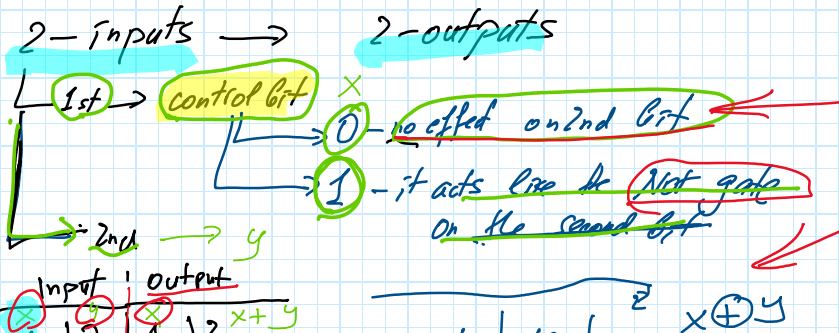 2-inputs → 2-outputs
1st → control bit x
0 - no effect on 2nd bit
1 - it acts like be Not gate
on the second bit
2nd → y
input output
x y x x+y
x ⊕ y